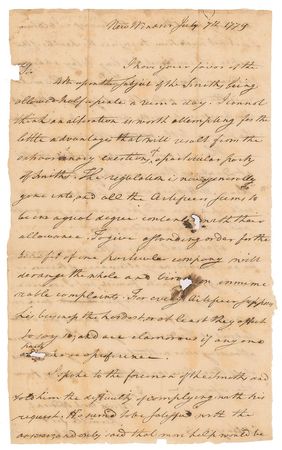 New Windsor July 7th 1779
Sir
I have your favor of the
4th upon the subject of the Smiths being
allowed half a peck a man a day. I cannot
think an alteration is worth attempting for the
little advantages that will result from the
extraordinary exertions of a particular party
of Smiths. The regulation is now generally
gone into and all the Artificers seems to
be in equal degree content with their
allowance. To give a standing order for the
benefit of one particular company will
derange the whole and bring on innume
rable complaints. For every Artificer
his being up the hardest or at least they affect
to say so, and are clamorous if any one
party a preference.
I spoke to the foreman of the Smiths and
told him the difficulty of complying with his
request. He seemed to be satisfied with the
answer and only said that more help would be